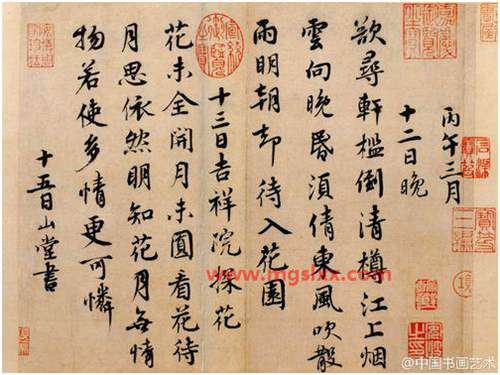 丙午三月
十二日晚
欲尋軒檻倒清樽江上烟
雲向晚昏須倩東風吹散
雨明朝却待入花園
十三日吉祥院探花
花未全開月未圓看花待
月思依然明知花月無情
物若使多情更可憐
十五日山堂書
www.mgslxx.com
@中国书画艺术